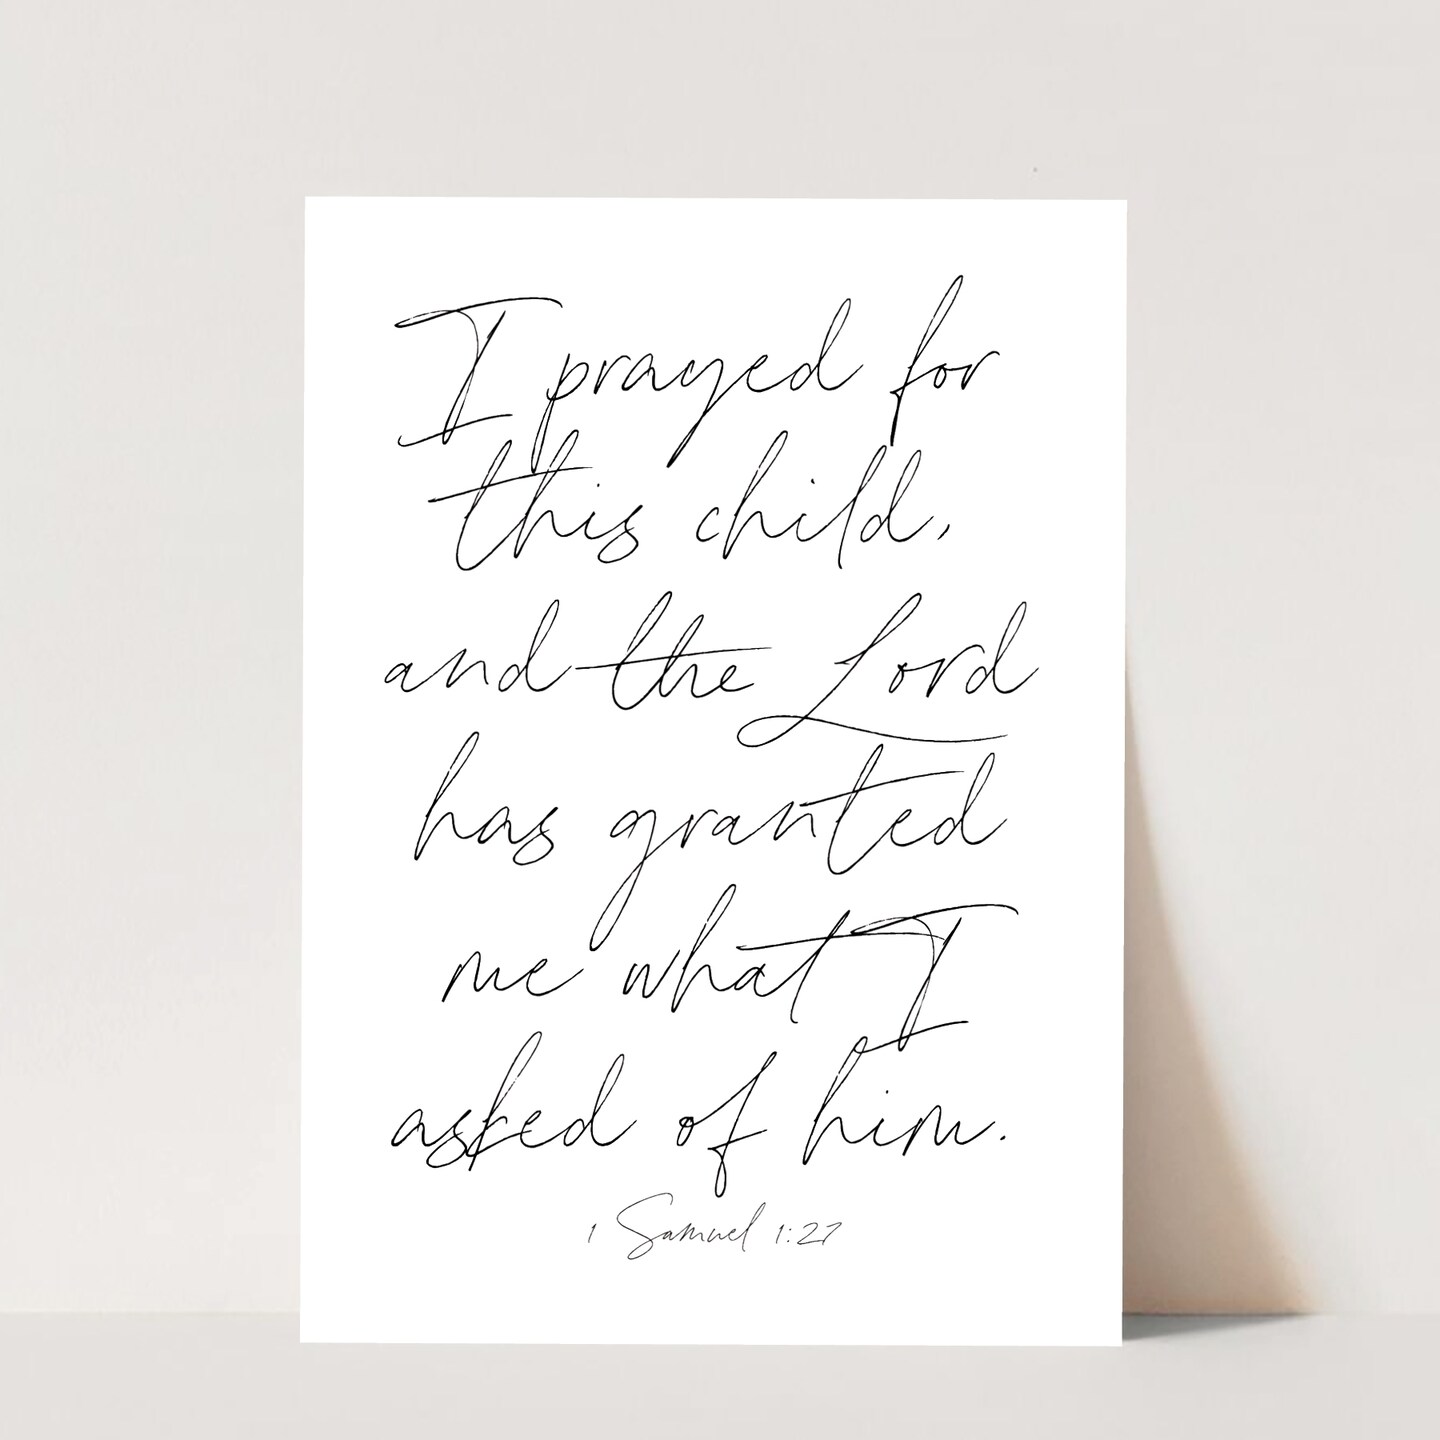 I prayed for
this child,
and the Lord
has granted
me what I
asked of him.
1 Samuel 1:27